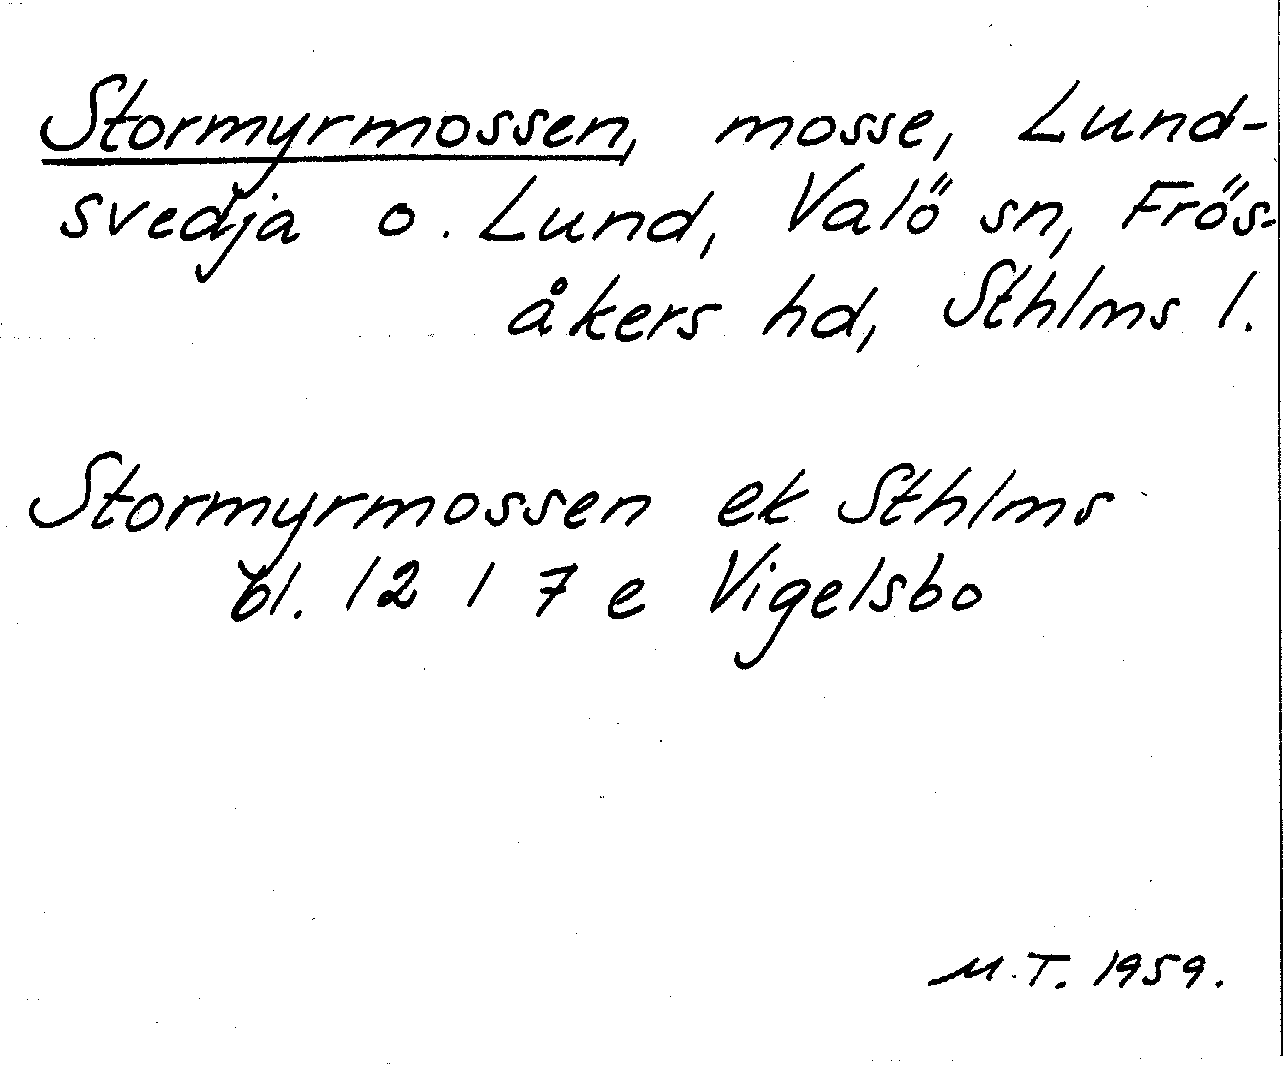 Stormyrmossen, mosse, Lund-
svedja o. Lund, Valö sn, Frös-
åkers hd, Sthlms l.
Stormyrmossen ek Sthlms
bl. 12 I 7 e Vigelsbo
M.T. 1959.